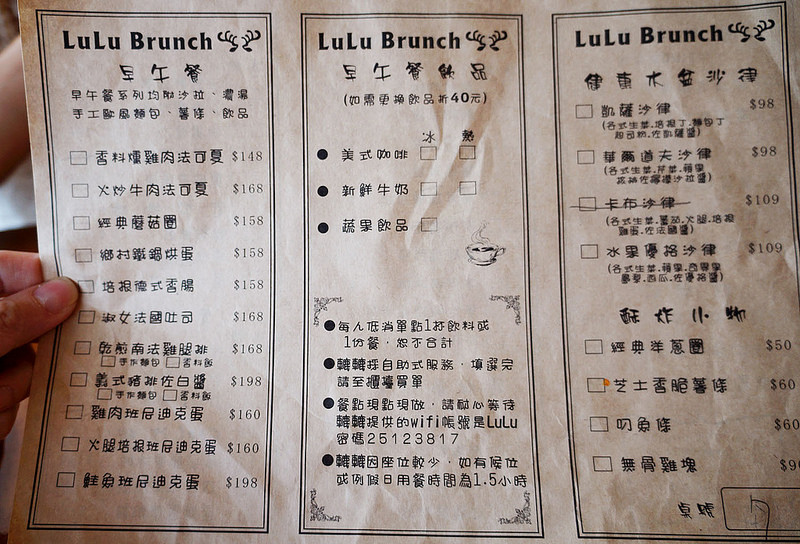 LuLu Brunch
早午餐
早午餐系列均附沙拉、濃湯
手工歐風麵包、薯條、飲品
香料燻雞肉法可夏 $148
火炒牛肉法可夏 $168
經典蘑菇圈 $158
鄉村鐵鍋烘蛋 $158
培根德式香腸 $158
淑女法國吐司 $168
乾煎南法雞腿排 $168
手作麵包 香料飯
義式豬排佐白醬 $198
手作麵包 香料飯
雞肉班尼迪克蛋 $160
火腿培根班尼迪克蛋 $160
鮭魚班尼迪克蛋 $198
LuLu Brunch
早午餐飲品
(如需更換飲品折40元)
冰 熱
美式咖啡
新鮮牛奶
蔬果飲品
每人低消單點1杯飲料或
1份餐，恕不合計
轉轉採自助式服務，填選完
請至櫃檯買單
餐點現點現做，請耐心等待
轉轉提供的wifi帳號是LuLu
密碼25123817
轉轉因座位較少，如有候位
或例假日用餐時間為1.5小時
LuLu Brunch
健康水盆沙律
凱薩沙律 $98
(各式生菜.培根丁.麵包丁
起司粉.佐凱薩醬)
華爾道夫沙律 $98
(各式生菜.芹菜.蘋果
核桃佐檸檬沙拉醬)
卡布沙律 $109
(各式生菜.蕃茄.火腿.培根
雞蛋.佐法國醬)
水果優格沙律 $109
(各式生菜.蘋果.奇異果
鳳梨.西瓜.佐優格醬)
酥炸小物
經典洋蔥圈 $50
芝士香脆薯條 $60
叼魚條 $60
無骨雞塊 $90
桌號